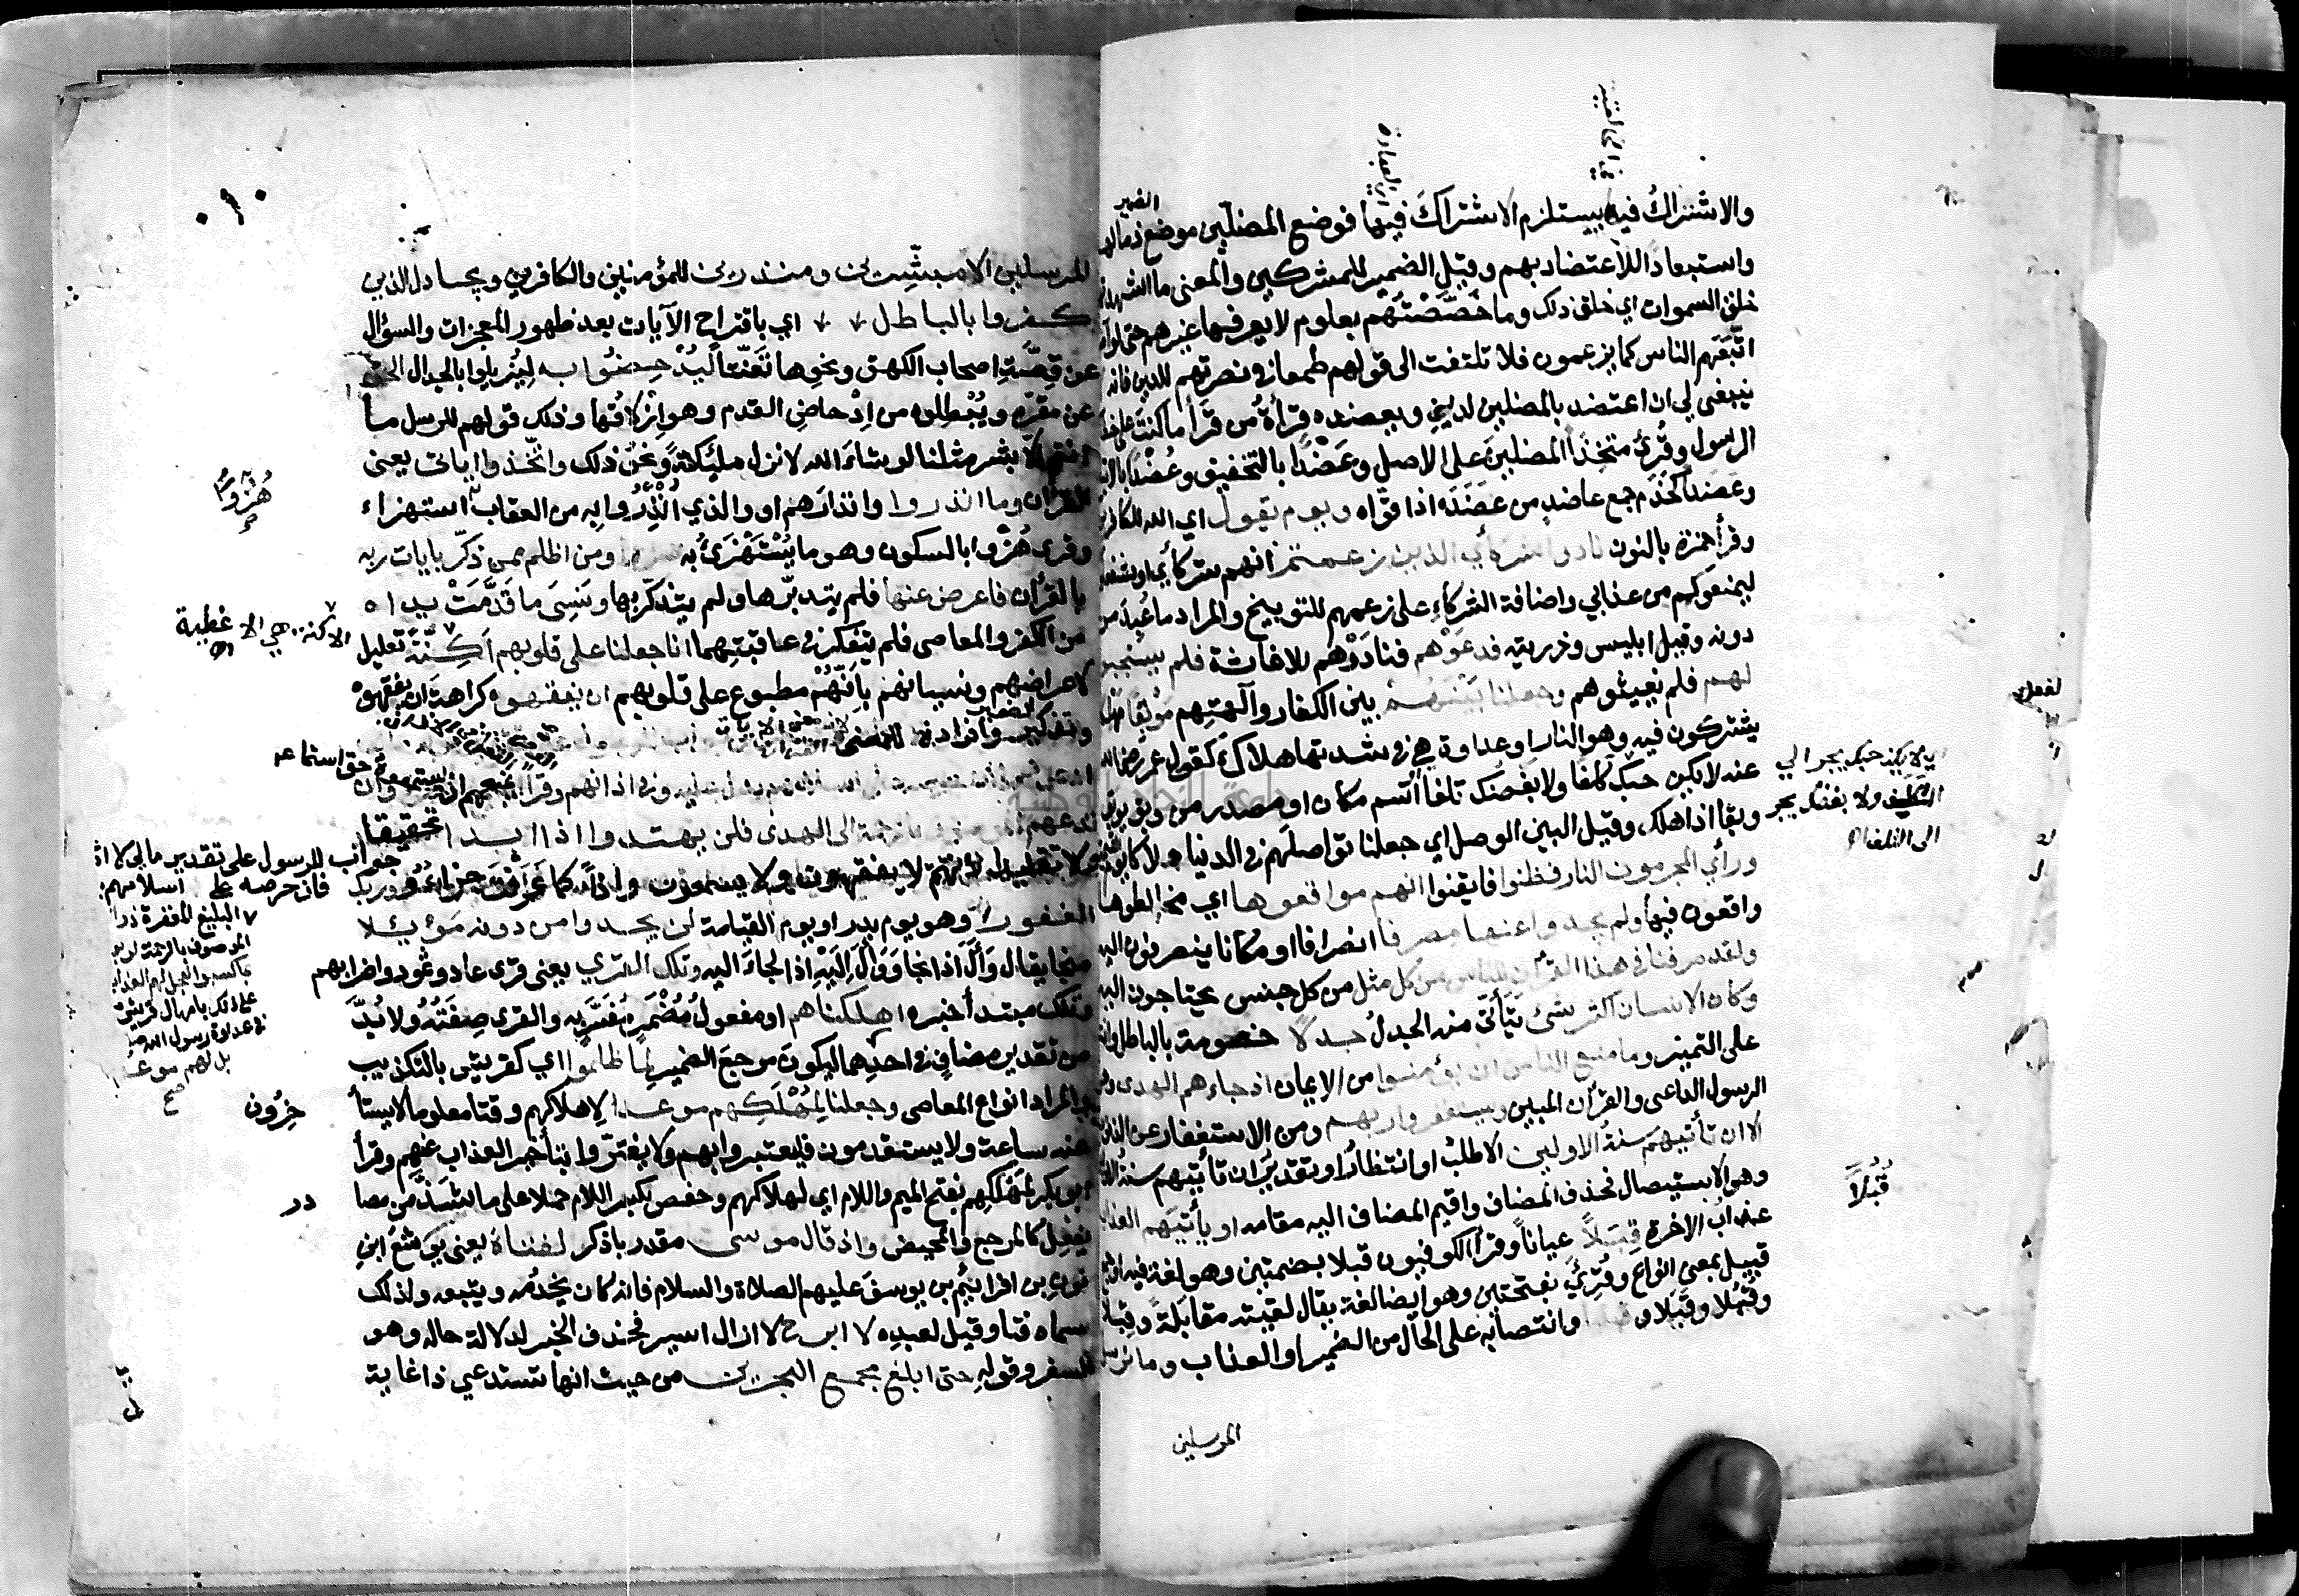 والاشتراك فيه يستلزم الاشتراك فيها فوضع المضلين موضع الضمير ذما لهم
واستبعادا للاعتضاد بهم وقيل الضمير للمشركين والمعنى ما اشهدتهم
خلق السموات اي خلق ذلك وما خصصتهم بعلوم لا يعرفها غيرهم حتى لو
اتبعهم الناس كما يزعمون فلا تلتفت الى قولهم طمعا في نصرتهم للدين فانه
ينبغى لي ان اعتضد بالمضلين لديني ويعضده قرأة من قرأ ما كنت على خطاب
الرسول وقرئ متخذا المضلين على الاصل وعضدا بالتخفيف وعضدا
وعضدا كخدم جمع عاضد من عضده اذا قواه ويوم يقول اي الله للكافرين
وقرأ حمزة بالنون نادوا شركاي الذين زعمتم انهم شركائي او شفعاؤكم
ليمنعوكم من عذابي واضافة الشركاء على زعمهم للتوبيخ والمراد ما عبد من
دونه وقيل ابليس وذريته فدعوهم فنادوهم للاغاثة فلم يستجيبوا
لهم فلم يغيثوهم وجعلنا بينهم بين الكفار وآلهتهم موبقا
يشتركون فيه وهو النار او عداوة هي في شدتها هلاك كقول عمر رضي الله
عنه لا يكن حبك كلفا ولا بغضك تلفا اسم مكان او مصدر من وبق يوبق
وبقا اذا هلك وقيل البين الوصل اي جعلنا تواصلهم في الدنيا هلاكا
ورأى المجرمون النار فظنوا فايقنوا انهم مواقعوها اي مخالطوها
واقعون فيها ولم يجدوا عنها مصرفا انصرافا او مكانا ينصرفون اليه
ولقد صرفنا في هذا القرآن للناس من كل مثل من كل جنس يحتاجون اليه
وكان الانسان اكثر شئ يتأتى منه الجدل جدلا خصومة بالباطل وانتصابه
على التمييز وما منع الناس ان يؤمنوا من الايمان اذ جاءهم الهدى وهو
الرسول الداعى والقرآن المبين ويستغفروا ربهم ومن الاستغفار عن الذنوب
الا ان تأتيهم سنة الاولين الا طلب او انتظار او تقدير ان تأتيهم سنة
وهى الاستيصال فحذف المضاف واقيم المضاف اليه مقامه او يأتيهم العذاب
عذاب الاخرة قبلا عيانا وقرأ الكوفيون قبلا بضمتين وهو لغة فيه او جمع
قبيل بمعنى انواع وقرئ بفتحتين وهو ايضا لغة يقال لقيته مقابلة وقبلا
وقبلا وقبلا وانتصابه على الحال من الضمير او العذاب وما نرسل
المرسلين
لا يكن حبك يجر الي
التكليف ولا بغضك يجر
الى التلف
قبلا
المرسلين الا مبشرين ومنذرين للمؤمنين والكافرين ويجادل الذين
كفروا بالباطل اي باقتراح الآيات بعد ظهور المعجزات والسؤال
عن قصة اصحاب الكهف ونحوها تعنتا ليدحضوا به ليزيلوا بالجدال الحق
عن مقره ويبطلوه من ادحاض القدم وهو ازلاقها وذلك قولهم للرسل ما
انتم الا بشر مثلنا لو شاء الله لانزل مليكة ونحو ذلك واتخذوا اياتى يعنى
القرآن وما انذروا وانذارهم او والذي انذروا به من العقاب استهزاء
وقرئ هزؤا بالسكون وهو ما يستهزئ به ومن اظلم ممن ذكر بايات ربه
بالقرأن فاعرض عنها فلم يتدبرها ولم يتذكر بها ونسى ما قدمت يداه
من الكفر والمعاصى فلم يتفكر في عاقبتهما انا جعلنا على قلوبهم اكنة تعليل
لاعراضهم ونسيانهم بانهم مطبوع على قلوبهم ان يفقهوه كراهة ان يفقهوه
وتذكير الضمير وافراده للمعنى
وفى اذانهم وقرا يمنعهم ان يستمعوه حق استماعه
وان تدعهم الى الهدى فلن يهتدوا اذا ابدا تحقيقا
ولا تقليدا لانهم لا يفقهون ولا يسمعون واذا كما عرفت جزاء وربك
الغفور وهو يوم بدر او يوم القيامة لن يجدوا من دونه موئلا
منجا يقال وأل اذا نجا ووأل اليه اذا لجاء اليه وتلك القرى يعنى قرى عاد وثمود واضرابهم
وتلك مبتدأ خبره اهلكناهم او مفعول مضمر مفسر به والقرى صفته ولا بد
من تقدير مضاف في احدهما ليكون مرجع الضمير لما ظلموا اي كقريش بالتكذيب
والمراد انواع المعاصى وجعلنا لمهلكهم موعدا لاهلاكهم وقتا معلوما لا يستأ
خرون
عنه ساعة ولا يستقدمون فليعتبروا بهم ولا يغتروا بتأخير العذاب عنهم وقرأ
ابو بكر لمهلكهم بفتح الميم واللام اي لهلاكهم وحفص بكسر اللام حملا على ما شذ من مصا
در
يفعل كالمرجع والمحيض واذ قال موسى مقدر باذكر لفتاه يعنى يوشع ابن
نون بن افرائيم بن يوسف عليهم الصلاة والسلام فانه كان يخدمه ويتبعه ولذلك
سماه فتا وقيل لعبده لا ابرح لا ازال اسير فحذف الخبر لدلالة حاله وهو
السفر وقوله حتى ابلغ مجمع البحرين من حيث انها تستدعي ذا غاية
هزوا
الاكنة هي الاغطية
جواب للرسول على تقدير مالى لا
فان حرصه على اسلامهم
البليغ المغفرة ذو
الموصوف بالرحمة لو يو
بما كسبوا لعجل لهم العذاب
على ذلك بامهال قريش
في عداوة رسول الله
بل لهم موعد
صح